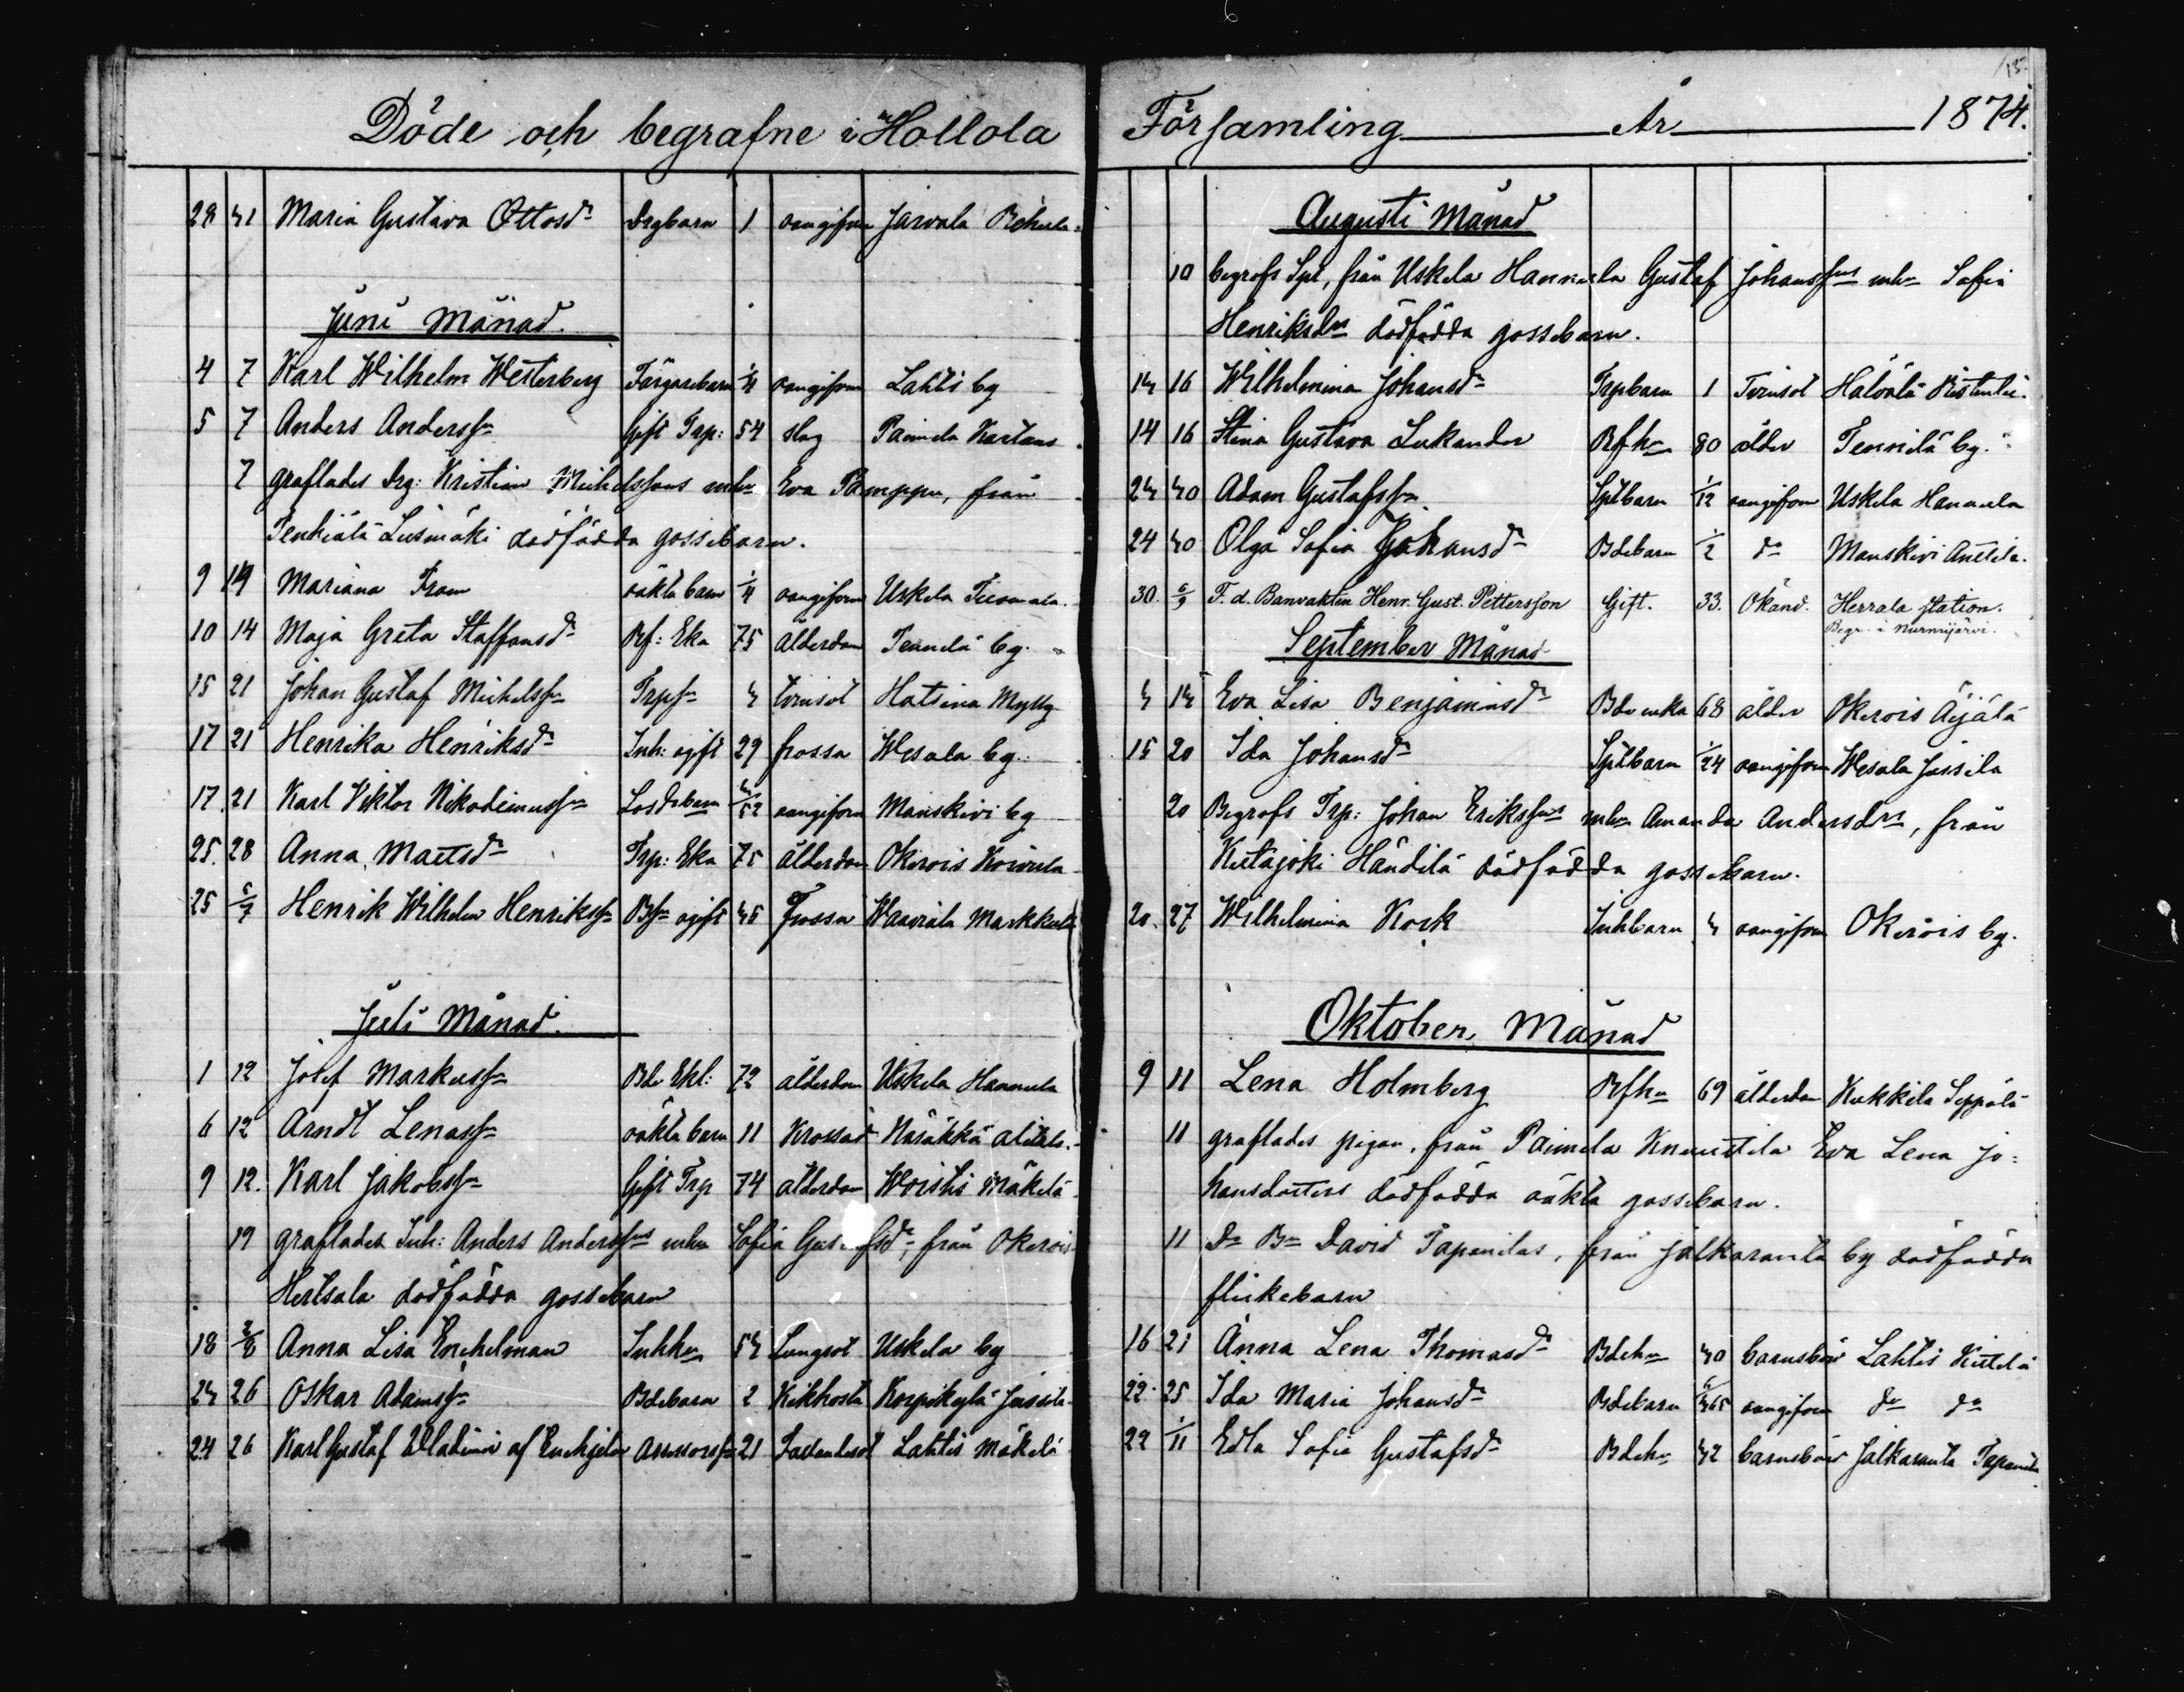 Döde och begrafne i Hollola
28 41 Maria Gustava Ottosdr Drgbarn 1 oangifven Jarvala
Juni Månad.
4 7 Karl Wilhelm Westerberg Färgarebarn 1/4 oangifven Lahtis by
5 7 Anders Anderssn Gift Trp: 54 slag Paimela
7 graflades Drg: Kristian Michelssons mhu Eva Pamppu, från
Tenhiälä Liismäki dödfödda gossebarn.
9 14 Mariana From oäkta barn 1/4 oangifven Uskila
10 14 Maja Greta Staffansdr Bf: Eka 75 ålderdom Tennilä by.
15 21 Johan Gustaf Michelssn Trpsn 4 tvinsot Hatsina Mylly
17 21 Henrika Henriksdr Inh: ogift 29 frossa Wesala by.
17 21 Karl Viktor Nikodemussn 4/52 oangifven Manskivi by
25. 28 Anna Mattsdr Trp: Eka 75 ålderdom Okerois Koivula
25 5/7 Henrik Wilhelm Henrikssn Bsn ogift 45 Frossa Markkula
Juli Månad.
1 12 Josef Markussn Bde Ekl: 72 ålderdom Uskila Hannula
6 12 Arndt Lenassn oäkta barn 11 Krossad Alitalo.
9 12. Karl Jakobssn Gift Trp 74 ålderdom Mäkelä
19 graflades Inh: Anders Anderssns mhu Sofia från Okerois
Hertsala dödfödda gossebarn
18 2/8 Anna Lisa Enehelman Inhhu 54 Lungsot Uskila by
24 26 Oskar Adamssn Bdebarn 2 Kikhosta Korpikylä Jussila
24 26 Karl Gustaf Wladimir af Enehjelm Assessorssn 21 Lahtis Mäkelä
15.
Församling År 1874.
Augusti Månad
10 begrofs Spt, från Uskila Hannula Gustaf Johanssns mhu Sofia
Henriksdrs dödfödda gossebarn.
14 16 Wilhelmina Johansdr Trpbarn 1 Tvinsot Hälvälä
14 16 Stina Gustava Lukander Bfhu 80 ålder Tennilä by.
24 40 Adam Gustafssn Sptbarn 1/12 oangifven Uskila Hannula
24 40 Olga Sofia Johansdr Bdebarn 1/2 do Manskivi Anttila.
30. 6/9 F. d. Banvakten Henr. Gust. Pettersson Gift. 33. Okänd. Herrala station.
Begr. i Nurmijärvi.
September Månad
4 14 Eva Lisa Benjaminsdr Bde enka 68 ålder Okerois Äijälä
15 20 Ida Johansdr Sptbarn 1/24 oangifven Wesala Jussila
20 Begrofs Trp: Johan Erikssns mhu Amanda Andersdrs, från
Kutajoki Händilä dödfödda gossebarn.
20. 27 Wilhelmina Kock Inhbarn 4 oangifven Okerois by.
Oktober, Månad
9 11 Lena Holmberg Bfhu 69 ålderdom Kukkila Seppälä
11 graflades pigan, från Paimela Knuutila Eva Lena Jo=
hansdotters dödfödda oäkta gossebarn.
11 Do Bn David Tapanilas, från Jalkaranta by dödfödda
flickebarn
16 21 Anna Lena Thomasdr Bdehu 40 barnsbörd Lahtis
22. 25 Ida Maria Johansdr Bdebarn 6/365 oangifven do do
22 1/11 Edla Sofia Gustafsdr Bdehu 42 barnsbörd Jalkaranta Tapanila